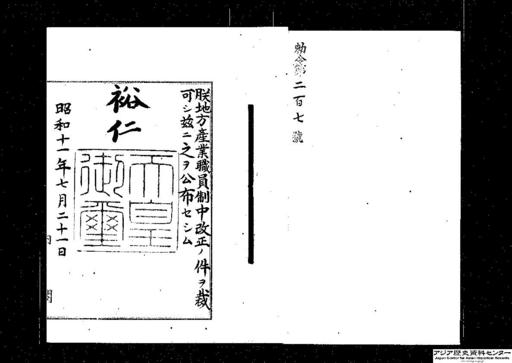 勅令第二百七號
朕地方產業職員制中改正ノ件ヲ裁
可シ玆ニ之ヲ公布セシム
裕仁
天皇御璽
昭和十一年七月二十一日
内閣
アジア歴史資料センター
Japan Center for Asian Historical Records